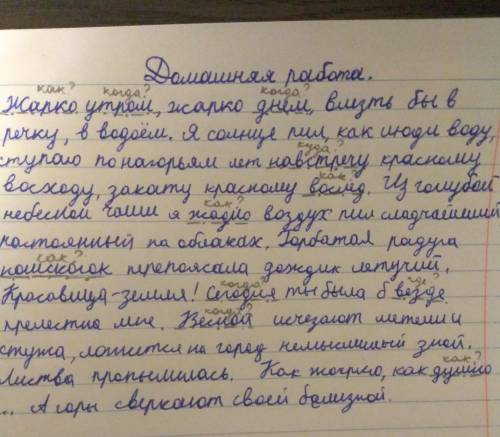 Домашняя работа.
как? когда? когда?
Жарко утром, жарко днём, влезть бы в
речку, в водоём. Я солнце пил, как люди воду,
куда?
ступаю по нагорьям лет навстречу красному
как?
восходу, закату красному вослед. Из голубой
как?
небесной чаши я жадно воздух пил сладчайший
настоянный на облаках. Горбатая радуга
как?
наискосок перепоясала дождик летучий.
когда? где?
Красавица-земля! Сегодня ты была б везде
когда?
прелестна мне. Весной исчезают метели и
стужа, ложится на город немыслимый зной.
как?
Листва пропылилась. Как жогрно, как душно
... А горы сверкают своей белизной.